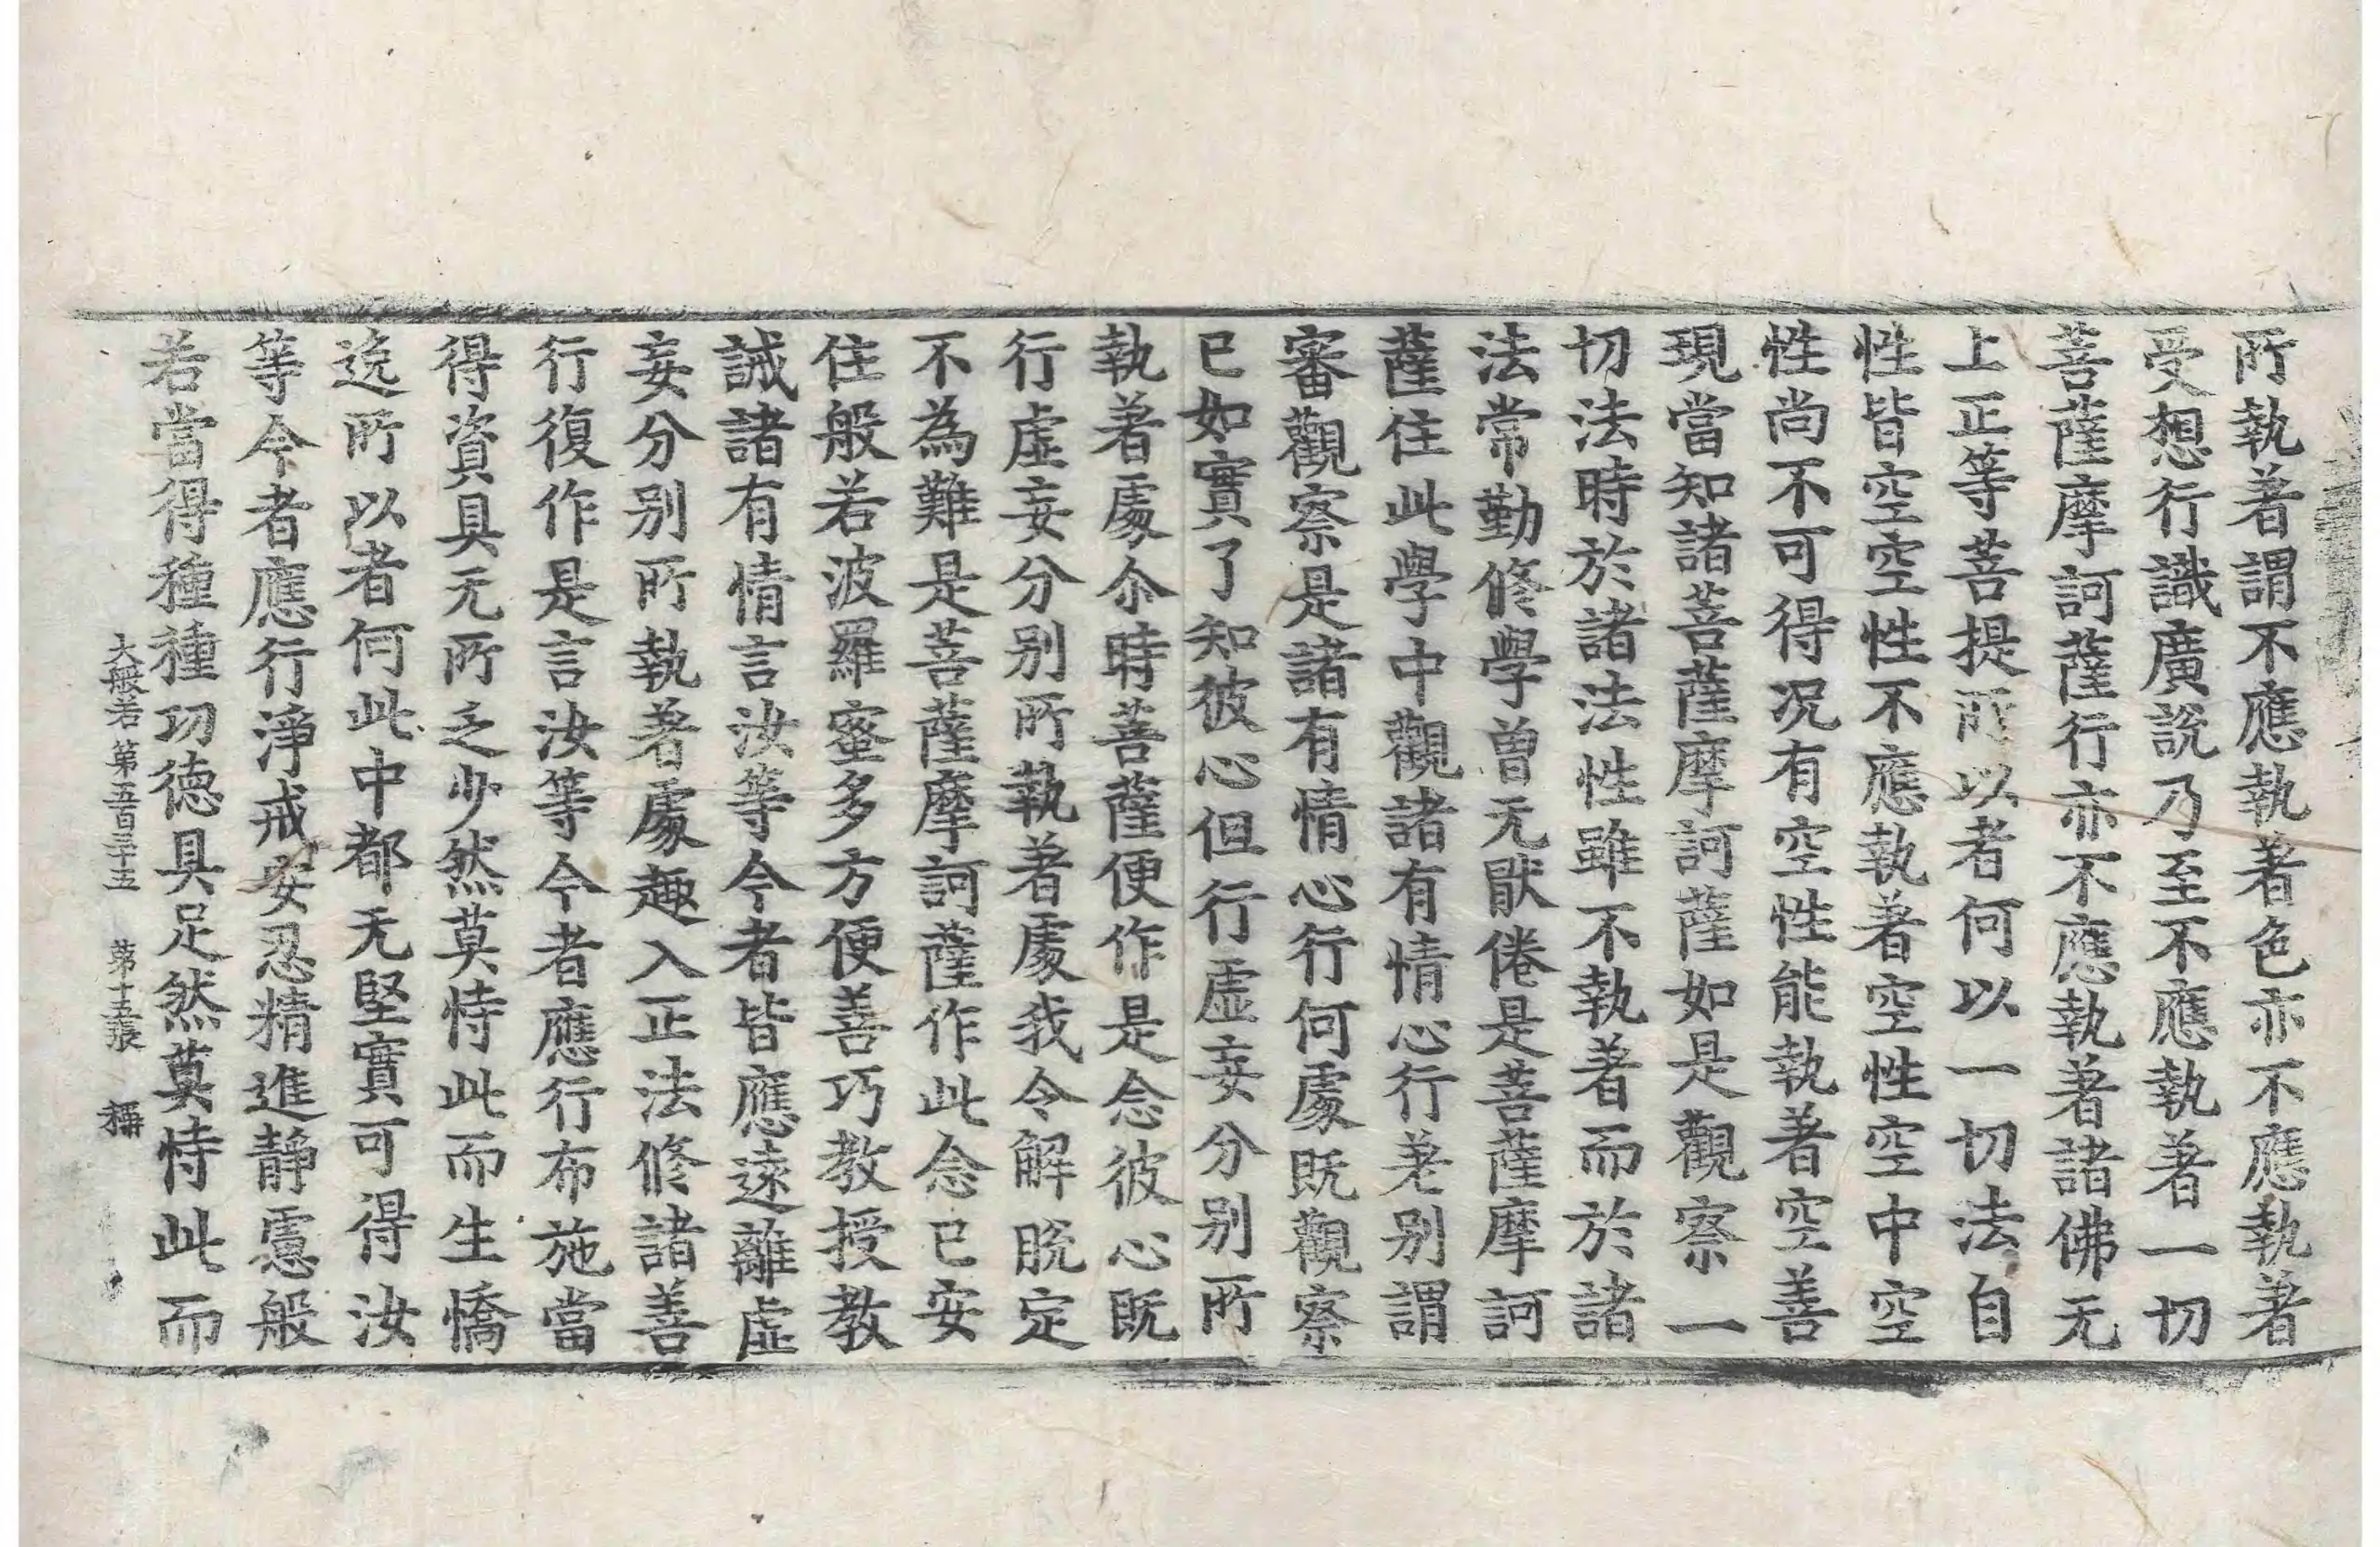 所執著謂不應執著色亦不應執著
受想行識廣說乃至不應執著一切
菩薩摩訶薩行亦不應執著諸佛无
上正等菩提所以者何以一切法自
性皆空空性不應執著空性空中空
性尚不可得況有空性能執著空善
現當知諸菩薩摩訶薩如是觀察一
切法時於諸法性雖不執著而於諸
法常勤修學曾无猒倦是菩薩摩訶
薩住此學中觀諸有情心行差別謂
審觀察是諸有情心行何處既觀察
已如實了知彼心但行虛妄分别所
執著處尒時菩薩便作是念彼心既
行虛妄分别所執著處我令解脫定
不為難是菩薩摩訶薩作此念已安
住般若波羅蜜多方便善巧教授教
誡諸有情言汝等今者皆應遠離虛
妄分别所執著處趣入正法修諸善
行復作是言汝等今者應行布施當
得資具无所乏少然莫恃此而生憍
逸所以者何此中都无堅實可得汝
等今者應行淨戒安忍精進靜慮般
若當得種種功德具足然莫恃此而
大般若第五百三十五 第十五張 稱